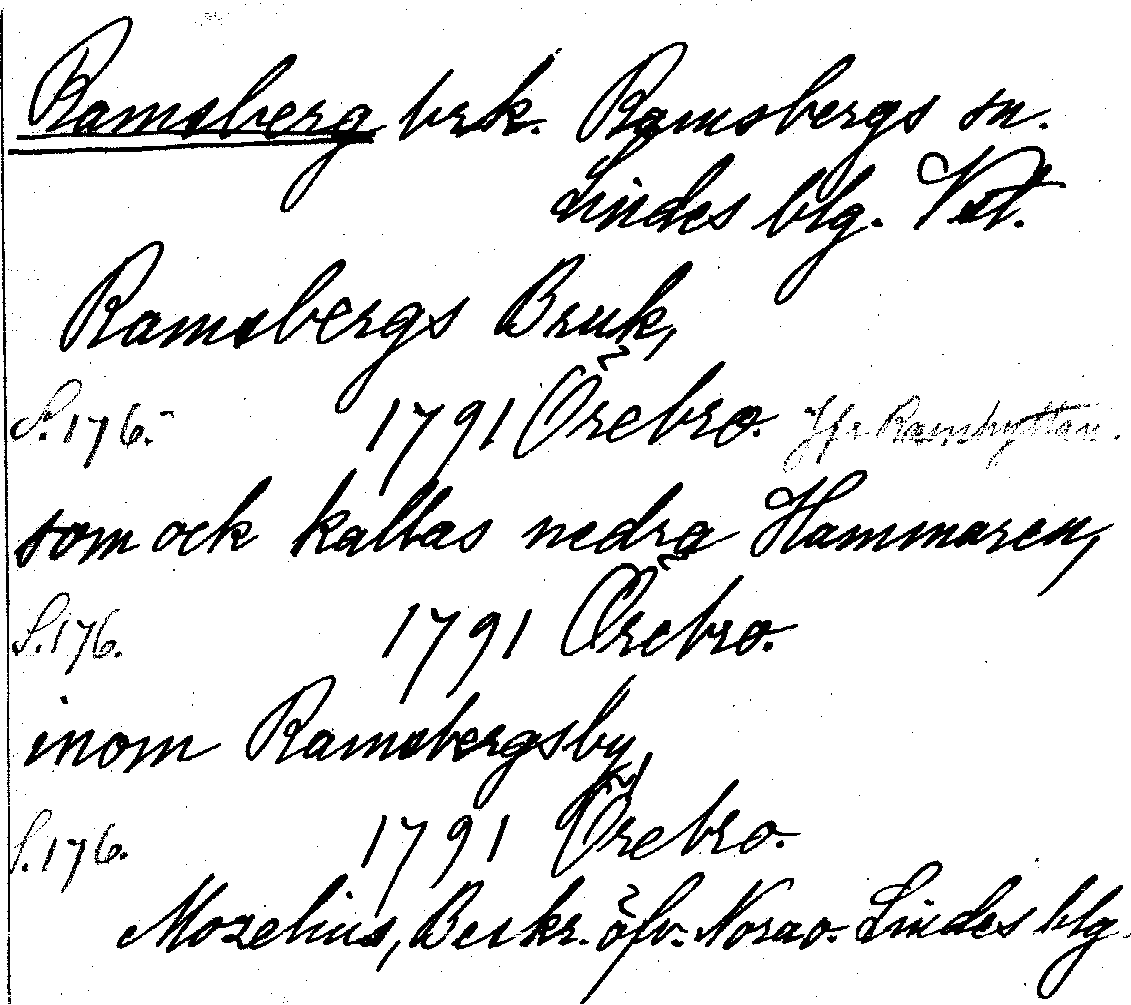 Ramsberg brk. Ramsbergs sn.
Lindes blg. Vstl.
Ramsbergs Bruk,
S. 176. 1791 Örebro. Jfr Ramshyttan.
som ock kallas nedra Hammaren,
S. 176. 1791 Örebro.
inom Ramsbergsby,
S. 176. 1791 Örebro.
Mozelius, Beskr. öfv. Nora o. Lindes blg.